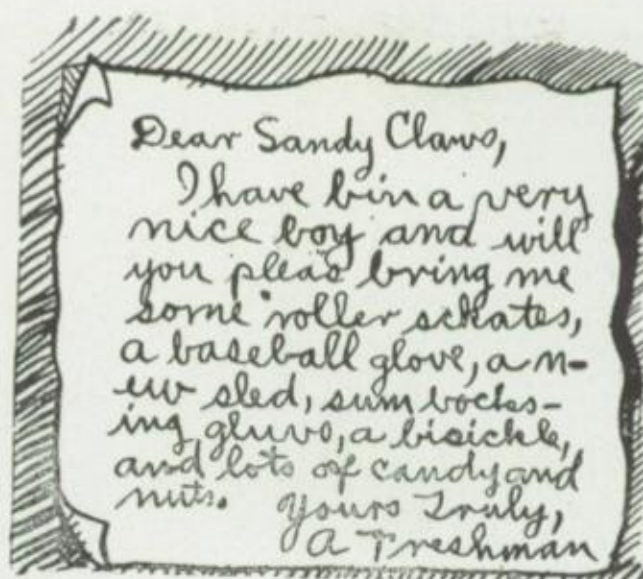 Dear Sandy Claws,
I have bin a very
nice boy and will
you pleas bring me
some roller schates,
a baseball glove, a n-
ew sled, sum bocks-
ing gluvs, a bisickle,
and lots of candy and
nuts. Yours Truly,
A Freshman